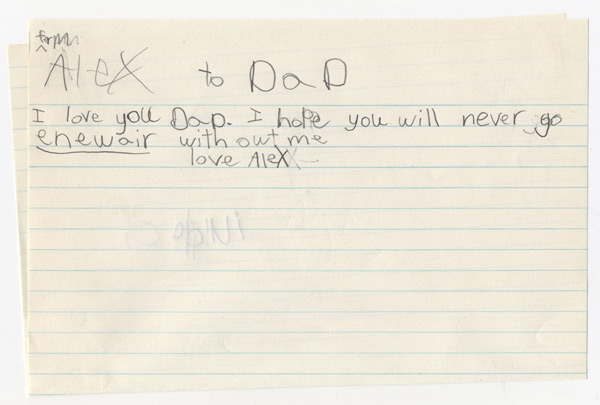 Alex to DaD
I love you Dap. I hope you will never go
enewair with out me
love Alex